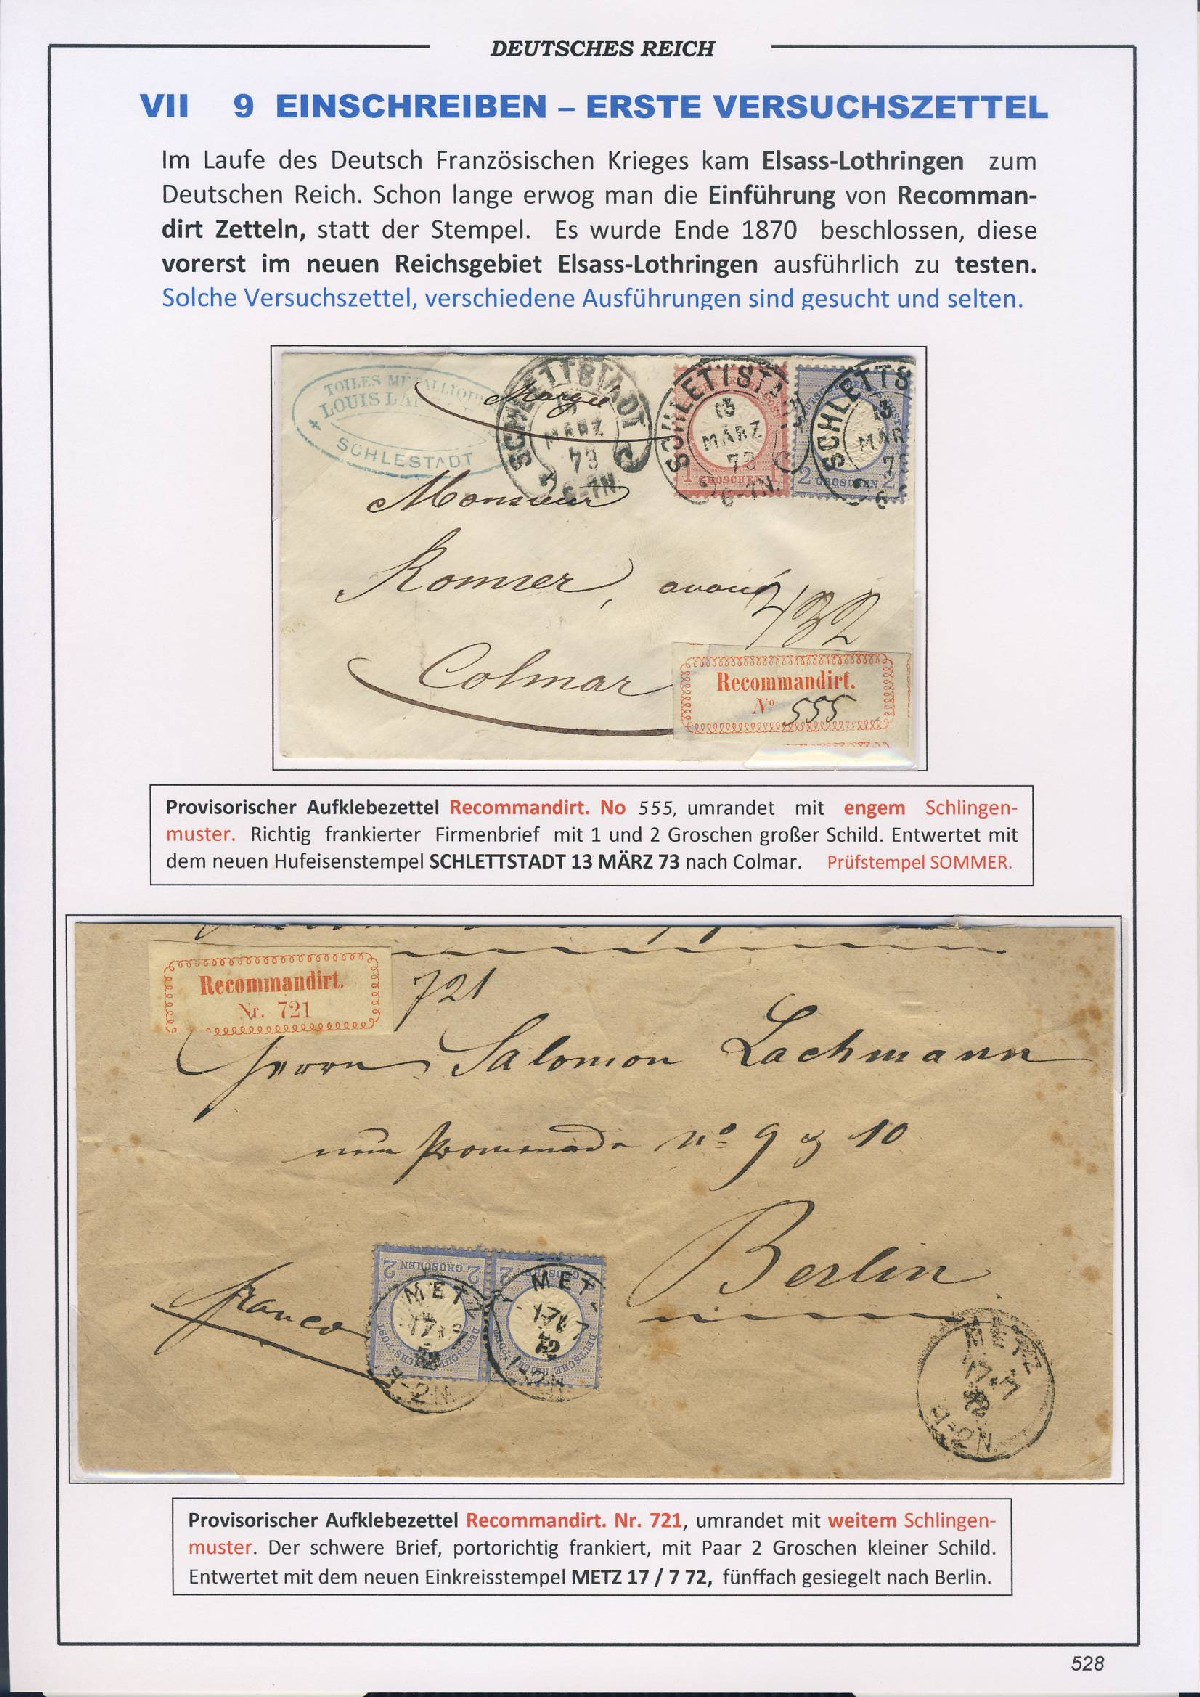 DEUTSCHES REICH
VII 9 EINSCHREIBEN – ERSTE VERSUCHSZETTEL
Im Laufe des Deutsch Französischen Krieges kam Elsass-Lothringen zum
Deutschen Reich. Schon lange erwog man die Einführung von Recomman-
dirt Zetteln, statt der Stempel. Es wurde Ende 1870 beschlossen, diese
vorerst im neuen Reichsgebiet Elsass-Lothringen ausführlich zu testen.
Solche Versuchszettel, verschiedene Ausführungen sind gesucht und selten.
TOILES
LOUIS
SCHLESTADT
SCHLETTSTADT
MÄRZ
73
6-7N.
SCHLETTSTA
MÄRZ
73
6-7N.
1 GROSCHEN
SCHLETTS
MÄR
7
6
2 GROSCHEN 2
Monsieur
Romser, avoué
432
Colmar
Recommandirt.
No 555
Provisorischer Aufklebezettel Recommandirt. No 555, umrandet mit engem Schlingen-
muster. Richtig frankierter Firmenbrief mit 1 und 2 Groschen großer Schild. Entwertet mit
dem neuen Hufeisenstempel SCHLETTSTADT 13 MÄRZ 73 nach Colmar. Prüfstempel SOMMER.
Recommandirt.
Nr. 721
721
Herrn Salomon Lachmann
Promenade No 9 & 10
Berlin
franco
2 GROSCHEN 2
2 GROSCHEN 2
METZ
17
METZ
17 7
72
METZ
17 7
72
Provisorischer Aufklebezettel Recommandirt. Nr. 721, umrandet mit weitem Schlingen-
muster. Der schwere Brief, portorichtig frankiert, mit Paar 2 Groschen kleiner Schild.
Entwertet mit dem neuen Einkreisstempel METZ 17 / 7 72, fünffach gesiegelt nach Berlin.
528